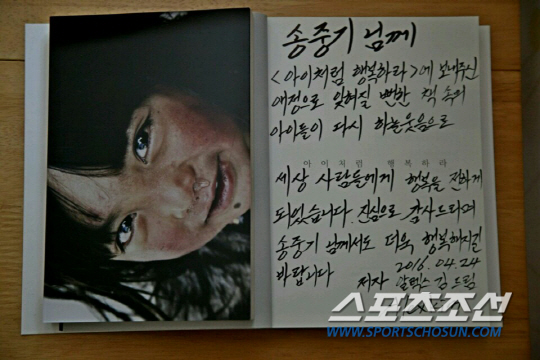 송중기 님께
<아이처럼 행복하라>에 보내주신
애정으로 잊혀질 뻔한 책 속의
아이들이 다시 하늘웃음으로
아이처럼 행복하라
세상 사람들에게 행복을 전하게
되었습니다. 진심으로 감사드리며
송중기 님께서도 더욱 행복하시길
바랍니다
2016.04.24
저자 알렉스 김 드림
스포츠조선
WWW.SPORTSCHOSUN.COM